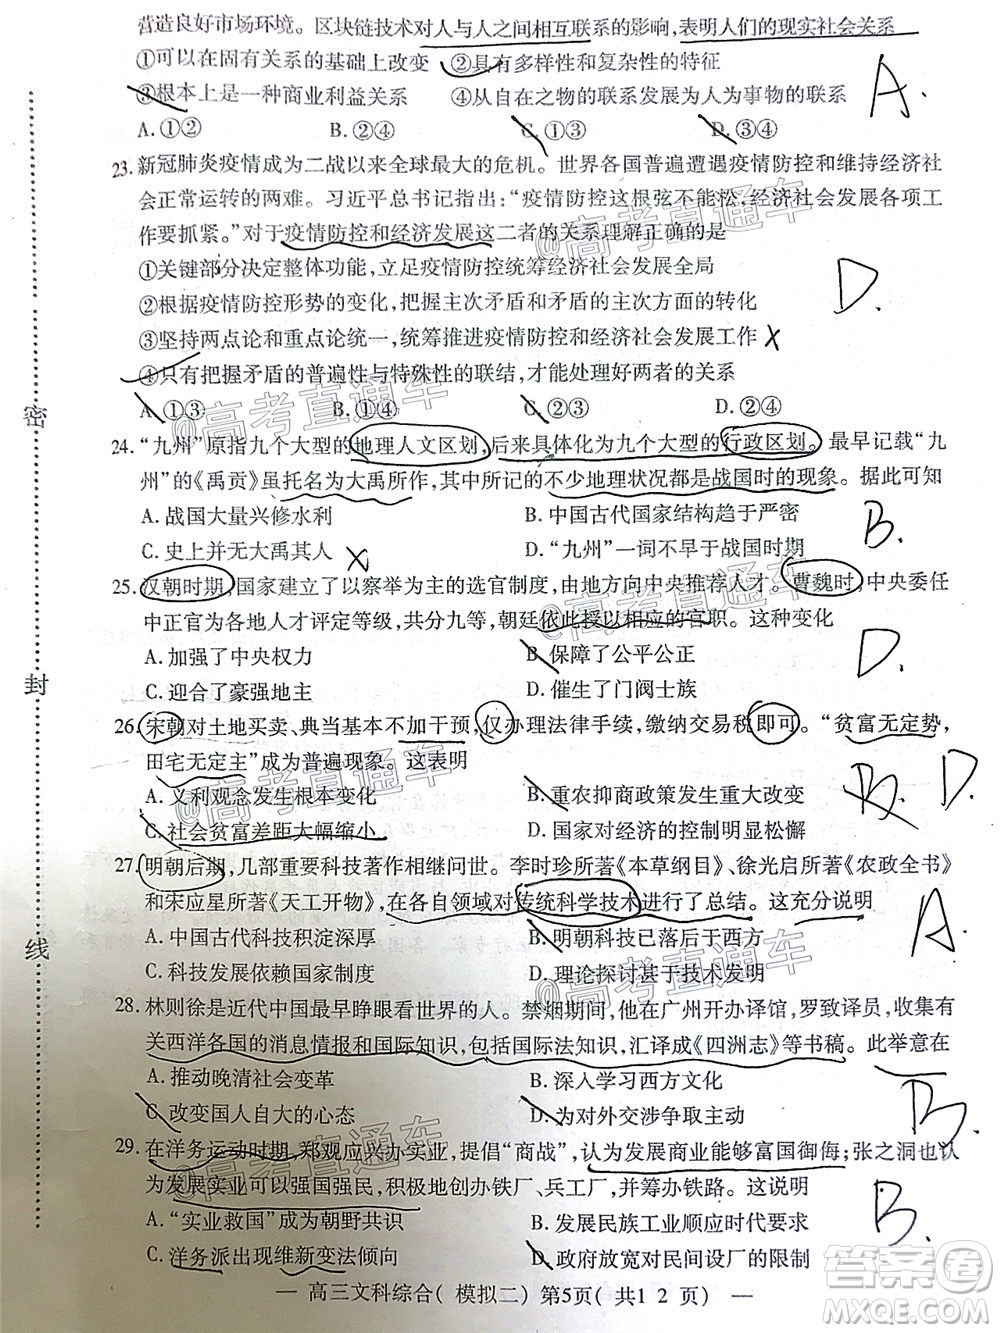 营造良好市场环境。区块链技术对人与人之间相互联系的影响,表明人们的现实社会关系
①可以在固有关系的基础上改变 ②具有多样性和复杂性的特征
③根本上是一种商业利益关系 ④从自在之物的联系发展为人为事物的联系
A.①② B.②④ C.①③ D.③④
A.
23.新冠肺炎疫情成为二战以来全球最大的危机。世界各国普遍遭遇疫情防控和维持经济社
会正常运转的两难。习近平总书记指出:“疫情防控这根弦不能松,经济社会发展各项工
作要抓紧。”对于疫情防控和经济发展这二者的关系理解正确的是
①关键部分决定整体功能,立足疫情防控统筹经济社会发展全局
②根据疫情防控形势的变化,把握主次矛盾和矛盾主次方面的转化
③坚持两点论和重点论统一,统筹推进疫情防控和经济社会发展工作
④只有把握矛盾的普遍性与特殊性的联结,才能处理好两者的关系
A.①③ B.①④ C.②③ D.②④
D.
24.“九州”原指九个大型的地理人文区划,后来具体化为九个大型的行政区划。最早记载“九
州”的《禹贡》虽托名为大禹所作,其中所记的不少地理状况都是战国时的现象。据此可知
A.战国大量兴修水利 B.中国古代国家结构趋于严密
C.史上并无大禹其人 D.“九州”一词不早于战国时期
B.
25.汉朝时期,国家建立了以察举为主的选官制度,由地方向中央推荐人才。曹魏时,中央委任
中正官为各地人才评定等级,共分九等,朝廷依此授以相应的官职。这种变化
A.加强了中央权力 B.保障了公平公正
C.迎合了豪强地主 D.催生了门阀士族
D.
26.宋朝对土地买卖、典当基本不加干预,仅办理法律手续,缴纳交易税即可。“贫富无定势,
田宅无定主”成为普遍现象。这表明
A.义利观念发生根本变化 B.重农抑商政策发生重大改变
C.社会贫富差距大幅缩小 D.国家对经济的控制明显松懈
B. D.
27.明朝后期,几部重要科技著作相继问世。李时珍所著《本草纲目》、徐光启所著《农政全书》
和宋应星所著《天工开物》,在各自领域对传统科学技术进行了总结。这充分说明
A.中国古代科技积淀深厚 B.明朝科技已落后于西方
C.科技发展依赖国家制度 D.理论探讨甚于技术发明
A.
28.林则徐是近代中国最早睁眼看世界的人。禁烟期间,他在广州开办译馆,罗致译员,收集有
关西洋各国的消息情报和国际知识,包括国际法知识,汇译成《四洲志》等书稿。此举意在
A.推动晚清社会变革 B.深入学习西方文化
C.改变国人自大的心态 D.为对外交涉争取主动
B.
29.在洋务运动时期,郑观应兴办实业,提倡“商战”,认为发展商业能够富国御侮;张之洞认
为发展实业可以强国强民,积极地创办铁厂、兵工厂,并筹办铁路。这说明
A.“实业救国”成为朝野共识 B.发展民族工业顺应时代要求
C.洋务派出现维新变法倾向 D.政府放宽对民间设厂的限制
B.
— 高三文科综合(模拟二)第5页(共12页) —
密
封
线
@高考直通车
@高考直通车
@高考直通车
@高考直通车
@高考直通车
@高考直通车
@高考直通车
答案圈
MXQE.COM